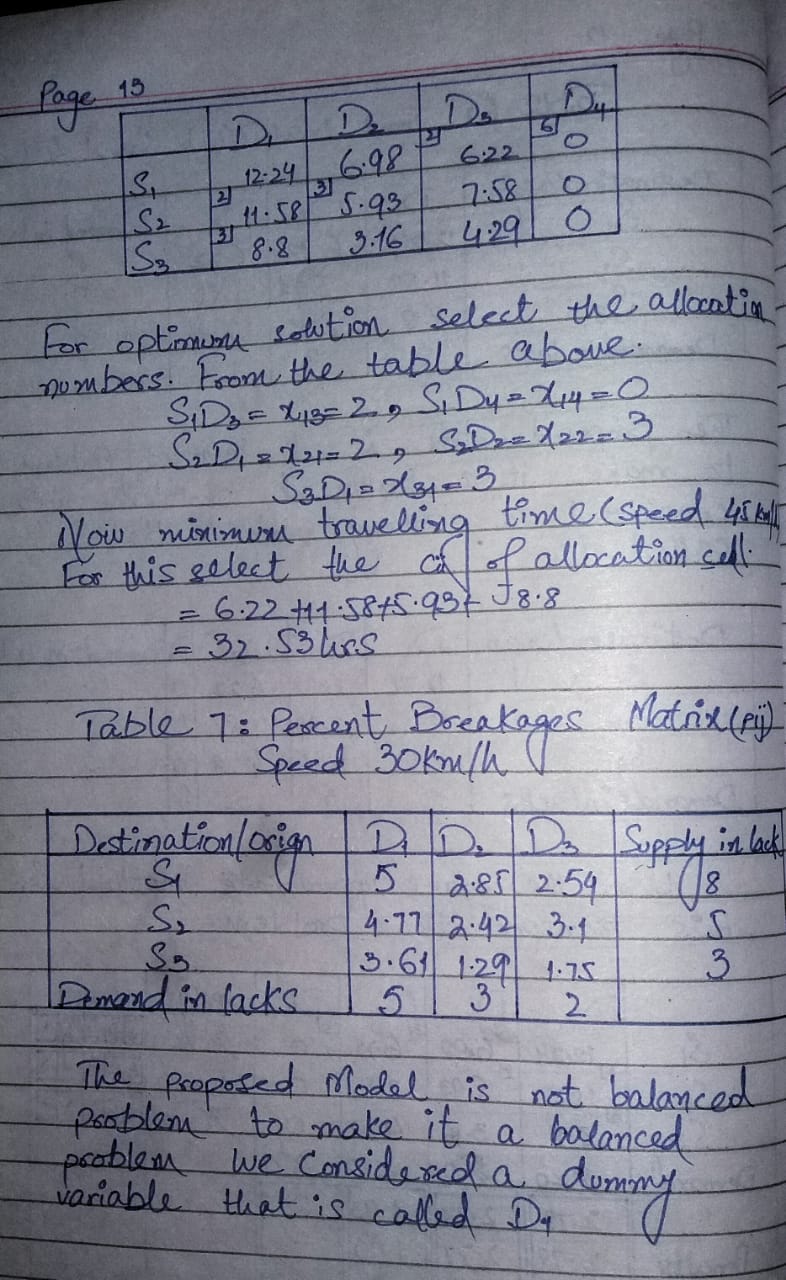 Page 13
D1 D2 D3 D4
S1 12.24 6.98 2 6.22 6 0
S2 2 11.58 3 5.93 7.58 0
S3 3 8.8 3.16 4.29 0
For optimum solution select the allocatin
numbers. From the table above.
S1D3 = x13= 2, S1D4 = x14 = 0
S2D1 = x21= 2, S2D2= x22 = 3
S3D1 = x31 = 3
Now minimum travelling time (speed 45 km/h
For this select the cij of allocation cell.
= 6.22 +11.58+5.93+ 8.8
= 32.53 hrs
Table 7: Percent Breakages Matrix (Pij)
Speed 30km/h
Destination/orign D1 D2 D3 Supply in lack
S1 5 2.85 2.54 8
S2 4.77 2.42 3.1 5
S3 3.61 1.29 1.75 3
Demand in lacks 5 3 2
The proposed Model is not balanced
problem to make it a balanced
problem we considered a dummy
variable that is called D4